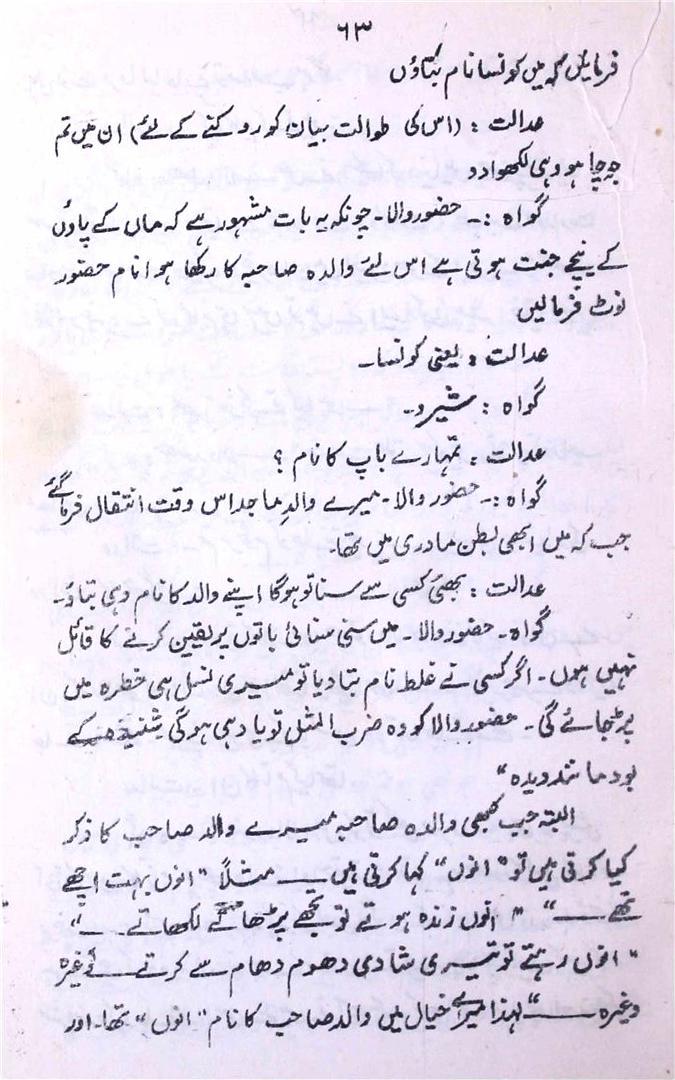 ۶۳
فرمائیں کہ میں کونسا نام بتاؤں
عدالت : (اس کی طوالت بیان کو روکنے کے لئے) ان میں تم
جو چاہو وہی لکھوا دو
گواہ :۔ حضور والا۔ چونکہ یہ بات مشہور ہے کہ ماں کے پاؤں
کے نیچے جنت ہوتی ہے اس لئے والدہ صاحبہ کا رکھا ہوا نام حضور
نوٹ فرمالیں
عدالت : یعنی کونسا۔
گواہ : شیرو۔
عدالت : تمہارے باپ کا نام ؟
گواہ :۔ حضور والا۔ میرے والدِ ماجد اس وقت انتقال فرماگئے
جب کہ میں ابھی بطن مادری میں تھا۔
عدالت : بھئی کسی سے سنا تو ہوگا اپنے والد کا نام وہی بتاؤ۔
گواہ۔ حضور والا۔ میں سنی سنائی باتوں پر یقین کرنے کا قائل
نہیں ہوں۔ اگر کسی نے غلط نام بتا دیا تو میری نسل ہی خطرہ میں
پڑ جائے گی۔ حضور والا کو وہ ضرب المثل تو یاد ہی ہوگی شنیدہ کے
بود مانند دیدہ“
البتہ جب کبھی والدہ صاحبہ میرے والد صاحب کا ذکر
کیا کرتی ہیں تو ”انوں“ کہا کرتی ہیں ــ مثلاً ”انوں بہت اچھے
تھے ــ“ ”انوں زندہ ہوتے تو تجھے پڑھاتے لکھاتے ــ“
”انوں رہتے تو تیری شادی دھوم دھام سے کرتے ــ وغیرہ
وغیرہ ــ“ لہذا میرے خیال میں والد صاحب کا نام ”انوں“ تھا۔ اور